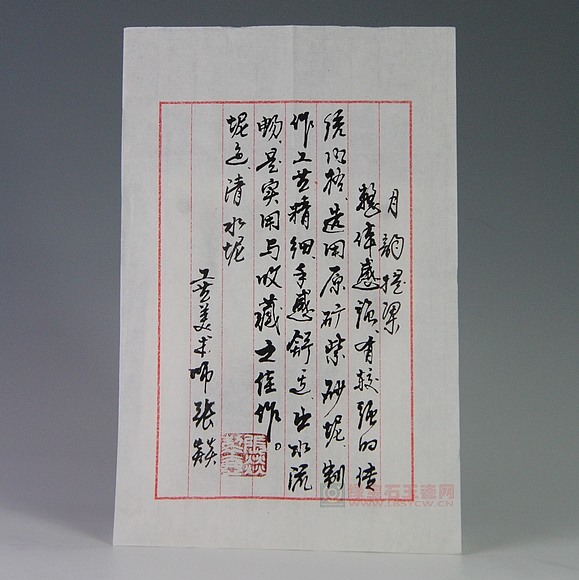 月韵提梁
整体感强、有较强的传
统风格、选用原矿紫砂泥、制
作工艺精细、手感舒适、出水流
畅、是实用与收藏之佳作。
泥色、清水泥
工艺美术师 张